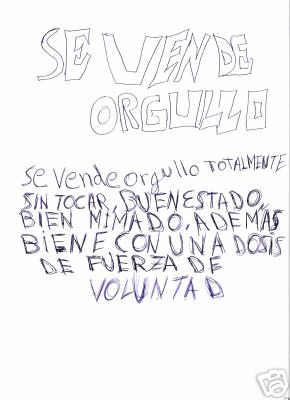 SE VENDE
ORGULLO
se vende orgullo TOTALMENTE
SIN TOCAR, BUEN ESTADO,
BIEN MIMADO, ADEMÁS
BIENE CON UNA DOSIS
DE FUERZA DE
VOLUNTAD